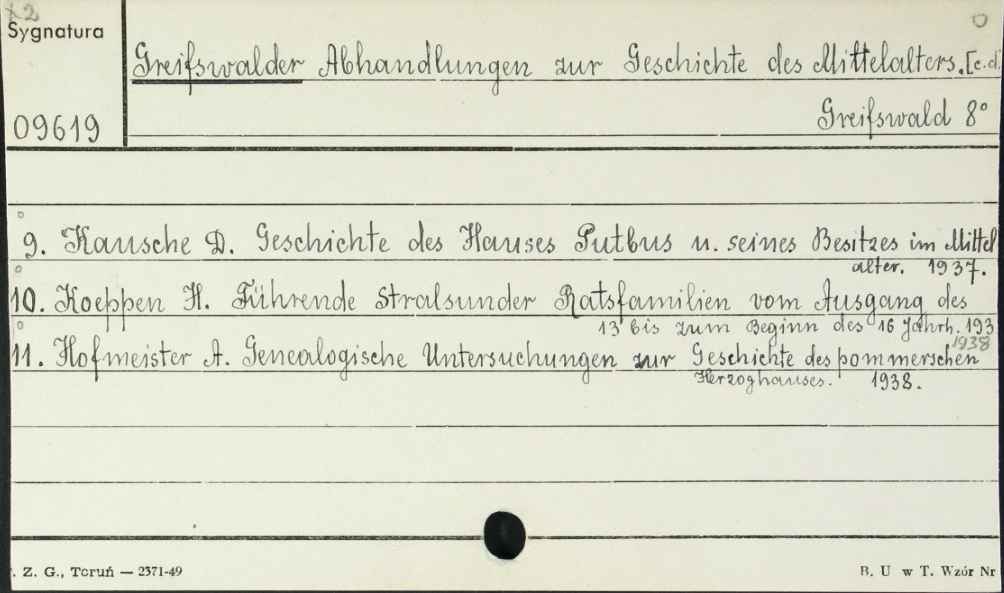 x2
Sygnatura
Greifswalder Abhandlungen zur Geschichte des Mittelalters. [c.d.
Greifswald 8°
09619
9. Kausche D. Geschichte des Hauses Putbus u. seines Besitzes im Mittel
alter. 1937.
10. Koeppen H. Führende Stralsunder Ratsfamilien vom Ausgang des
13 bis zum Beginn des 16 Jahrh. 193
1938
11. Hofmeister A. Genealogische Untersuchungen zur Geschichte des pommerschen
Herzoghauses. 1938.
. Z. G., Toruń — 2371-49
B. U w T. Wzór Nr